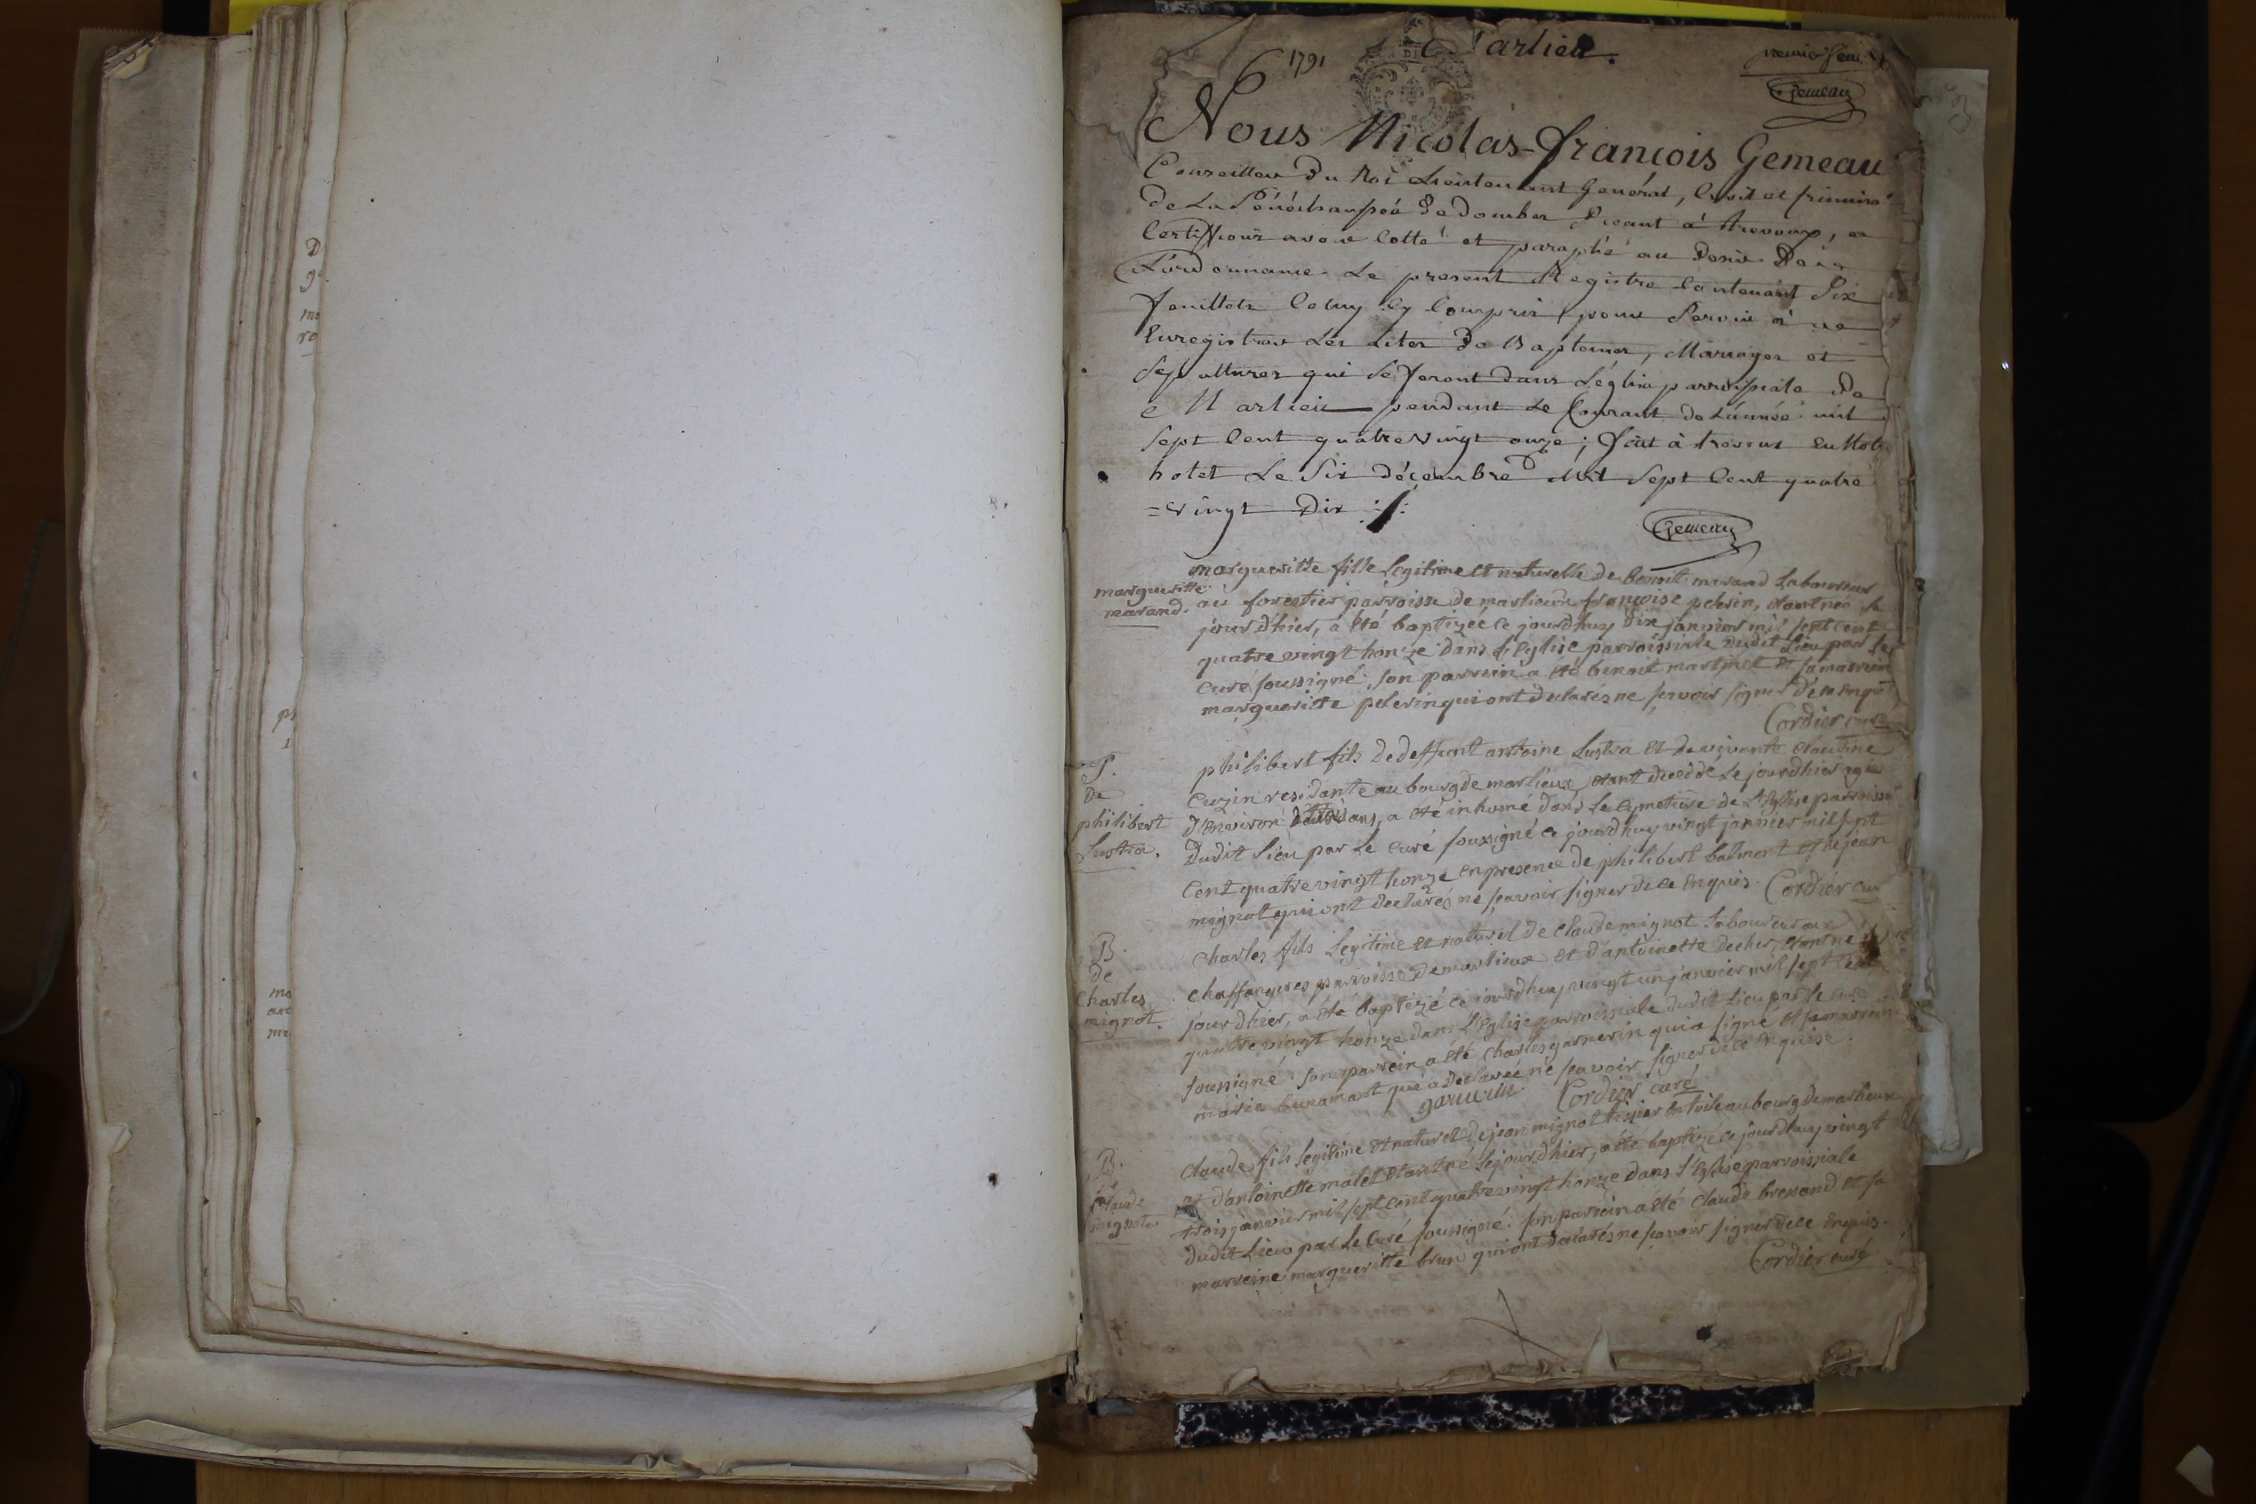 1791 Marlieu.
premier feuillet
Gemeau
Nous Nicolas-françois Gemeau
Conseiller Du Roi Lieutenant General, Civil et Criminel
De La Sénéchaussée De Dombes Séant à Trevoux,
Certiffions avoir Cotté et paraphé au Desir De
L'ordonnance Le present Registre Contenant Six
feuillets Celuy Cy Compris pour Servir à
Enregistrer Les Actes De Baptemes, Mariages et
Sepultures qui Se feront dans L'église parroissiale De
Marlieu pendant Le Courant de L'année mil
Sept Cent quatre vingt onze; fait à Trevoux En Notre
hotel Le Six décembre Mil Sept Cent quatre
=vingt Dix
Gemeau
margueritte fille Legitime et naturelle de Benoit marand Laboureur
margueritte
marand.
au forestier parroisse de marlieux françoise pelerin, étant née le
jour d'hier, a été baptizée ce jourd'huy dix janvier mil sept cent
quatre vingt honze dans l'Eglise parroissiale dudit Lieu par le
curé soussigné. son parrein a été benoit martinet et sa marreine
margueritte pelerin qui ont declarés ne sçavoir signer de ce enquis
Cordier curé
S.
De
philibert
Lustra.
philibert fils de deffunt antoine Lustra et de vivante claudine
cuzin residante au bourg de marlieux, étant decedé le jour d'hier agé
d'environ ans, a été inhumé dans le cymetiere de l'Eglise parroissiale
Dudit Lieu par le curé soussigné ce jourd'huy vingt janvier mil sept
Cent quatre vingt honze en presence de philibert balmont et de jean
mignot qui ont declarés ne sçavoir signer de ce enquis. Cordier curé
B.
de
Charles
mignot.
Charles fils Legitime et naturel de Claude mignot Laboureur aux
chaffangeres parroisse de marlieux et d'antoinette decher, étant né le
jour d'hier, a été baptizé ce jourd'huy vingt un janvier mil sept cent
quatre vingt honze dans l'Eglise parroissiale dudit Lieu par le curé
soussigné: son parrein a été Charles garnerin qui a signé et sa marreine
marie qui a declarée ne sçavoir signer de ce enquise.
garnerin Cordier curé
B.
Claude
mignot.
Claude fils legitime et naturel de jean mignot tissier en toile au bourg de marlieux
et d'antoinette malet étant né le jour d'hier, a été baptizé ce jourd'huy vingt
trois janvier mil sept cent quatre vingt honze dans l'Eglise parroissiale
dudit Lieu par le curé soussigné: son parrein a été Claude bressand et sa
marreine margueritte brun qui ont declarés ne sçavoir signer de ce enquis.
Cordier curé